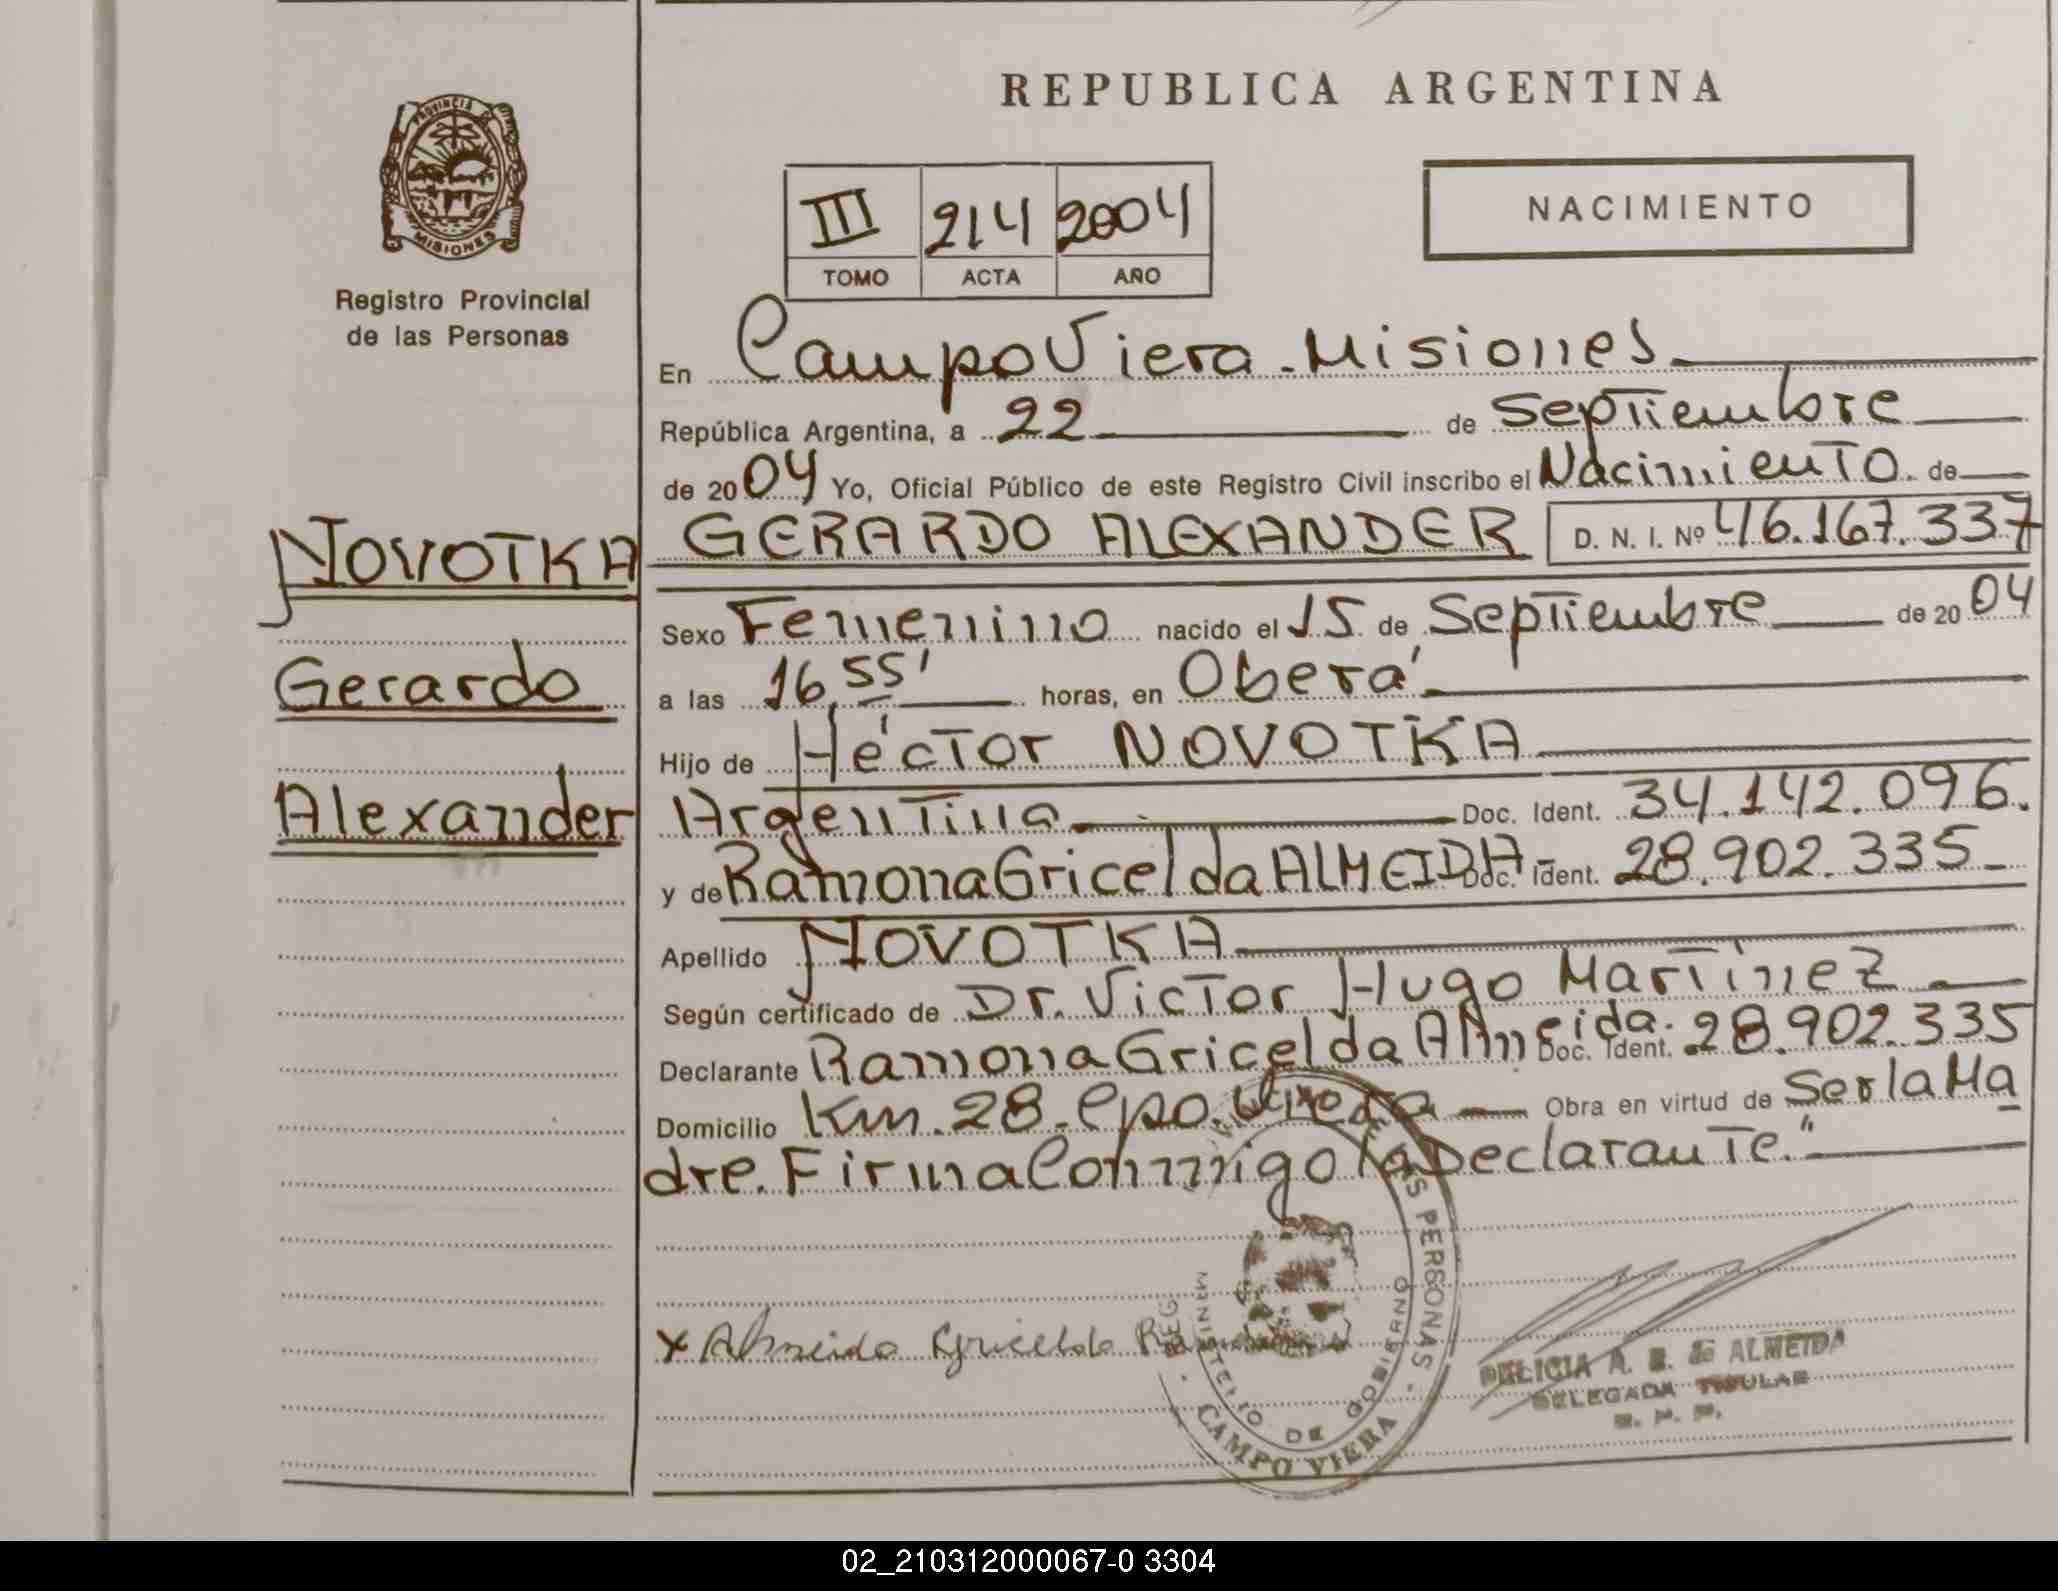 PROVINCIA
MISIONES
Registro Provincial
de las Personas
NOVOTKA
Gerardo
Alexander
REPUBLICA ARGENTINA
III 214 2004
TOMO ACTA AÑO
NACIMIENTO
En Campo Viera - Misiones
República Argentina, a 22 de Septiembre
de 2004 Yo, Oficial Público de este Registro Civil inscribo el Nacimiento de
GERARDO ALEXANDER D. N. I. Nº 46.167.337
Sexo Femenino nacido el 15 de Septiembre de 2004
a las 16,55' horas, en Oberá
Hijo de Héctor NOVOTKA
Argentina Doc. Ident. 34.142.096.
y de Ramona Gricelda ALMEIDA Doc. Ident. 28.902.335
Apellido NOVOTKA
Según certificado de Dr. Victor Hugo Martinez
Declarante Ramona Gricelda Almeida. Doc. Ident. 28.902.335
Domicilio Km. 28. Cpo. Viera Obra en virtud de Ser la Ma
dre. Firma Conmigo la Declarante."
x Almeida Gricelda
PERSONAS
DE GOBIERNO
CAMPO VIERA
DELICIA A. B. de ALMEIDA
DELEGADA TITULAR
02_210312000067-0 3304